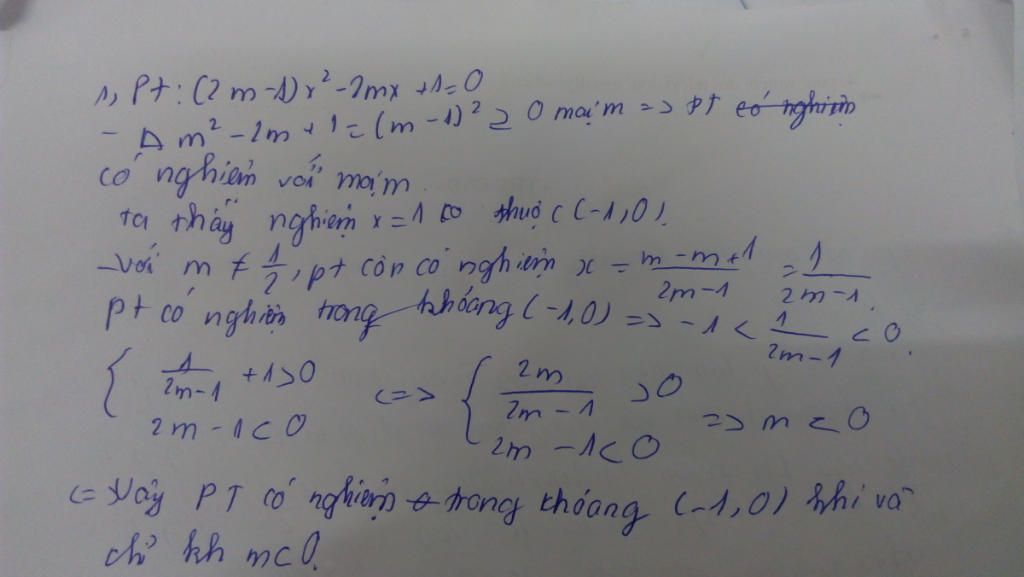 1, Pt: (2m-1)x² - 2mx + 1 = 0
- Δ m² - 2m + 1 = (m-1)² ≥ 0 mọi m => PT có nghiệm
có nghiệm với mọi m.
ta thấy nghiệm x = 1 ko thuộc (-1,0).
- Với m ≠ 1/2, pt còn có nghiệm x = (m - m + 1)/(2m-1) = 1/(2m-1).
pt có nghiệm trong khoảng (-1,0) => -1 < 1/(2m-1) < 0.
{ 1/(2m-1) + 1 > 0 <=> { 2m/(2m-1) > 0
2m - 1 < 0 2m - 1 < 0 => m < 0
<= Vậy PT có nghiệm trong khoảng (-1,0) khi và
chỉ kh m < 0.